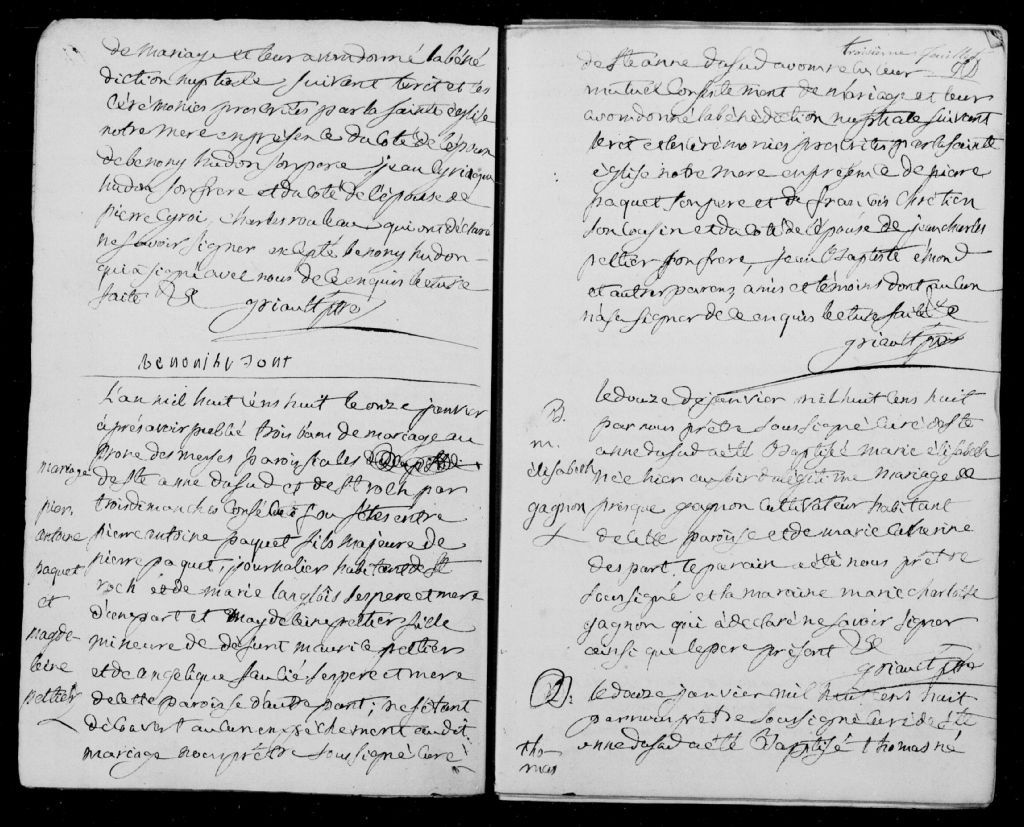 de mariage et leur avons donné la béné
diction nuptiale suivant le rit et les
cérémonies prescrites par la sainte église
notre mere en présence du coté de l'époux
de benony hudon son pere, jean
hudon son frere et du coté de l'épouse de
pierre, charles rouleau qui ont déclaré
ne savoir signer excepté benony hudon
qui a signé avec nous de ce enquis lecture
faite
griault ptre
benoni hudont
L'an mil huit cens huit le onze janvier
après avoir publié trois bans de mariage au
prone des messes paroissiales
de ste anne du sud et de st roch par
trois dimanches consécutifs ou fêtes entre
pierre antoine paquet fils majeure de
pierre paquet, journalier habitant de st
roch et de marie langlois ses pere et mere
d'une part et magdeleine peltier fille
mineure de defunt maurice peltier
et de angelique saulié ses pere et mere
de cette paroisse d'autre part; ne s'etant
découvert aucun empêchement au dit
mariage nous prêtre soussigné curé
mariage
pier.
antoine
paquet
et
magde-
leine
peltier
troisieme feuillet
de Ste anne du sud avons recu leur
mutuel consentement de mariage et leurs
avons donné la bénédiction nuptiale suivant
le rit et les cérémonies prescrites par la sainte
église notre mere en présence de pierre
paquet son pere et de françois chrétien
son cousin et du coté de l'épouse de jean charles
peltier son frere, jean Baptiste émond
et autres parens, amis et témoins dont aucun
n'a su signer de ce enquis lecture faite
griault ptre
le douze de janvier mil huit cens huit
par nous prêtre soussigné curé de ste
anne du sud a été Baptisé marie élisabeth
née hier au soir du légitime mariage de
presque gagnon cultivateur habitant
de cette paroisse et de marie catherine
despart le parain a été nous prêtre
soussigné et la maraine marie charlotte
gagnon qui a déclaré ne savoir signer
ainsi que le pere présent
griault ptre
B.
m.
élisabeth
gagnon
le douze janvier mil huit cens huit
par nous prêtre soussigné curé de ste
anne du sud a été Baptisé thomas né
B.
tho
mas